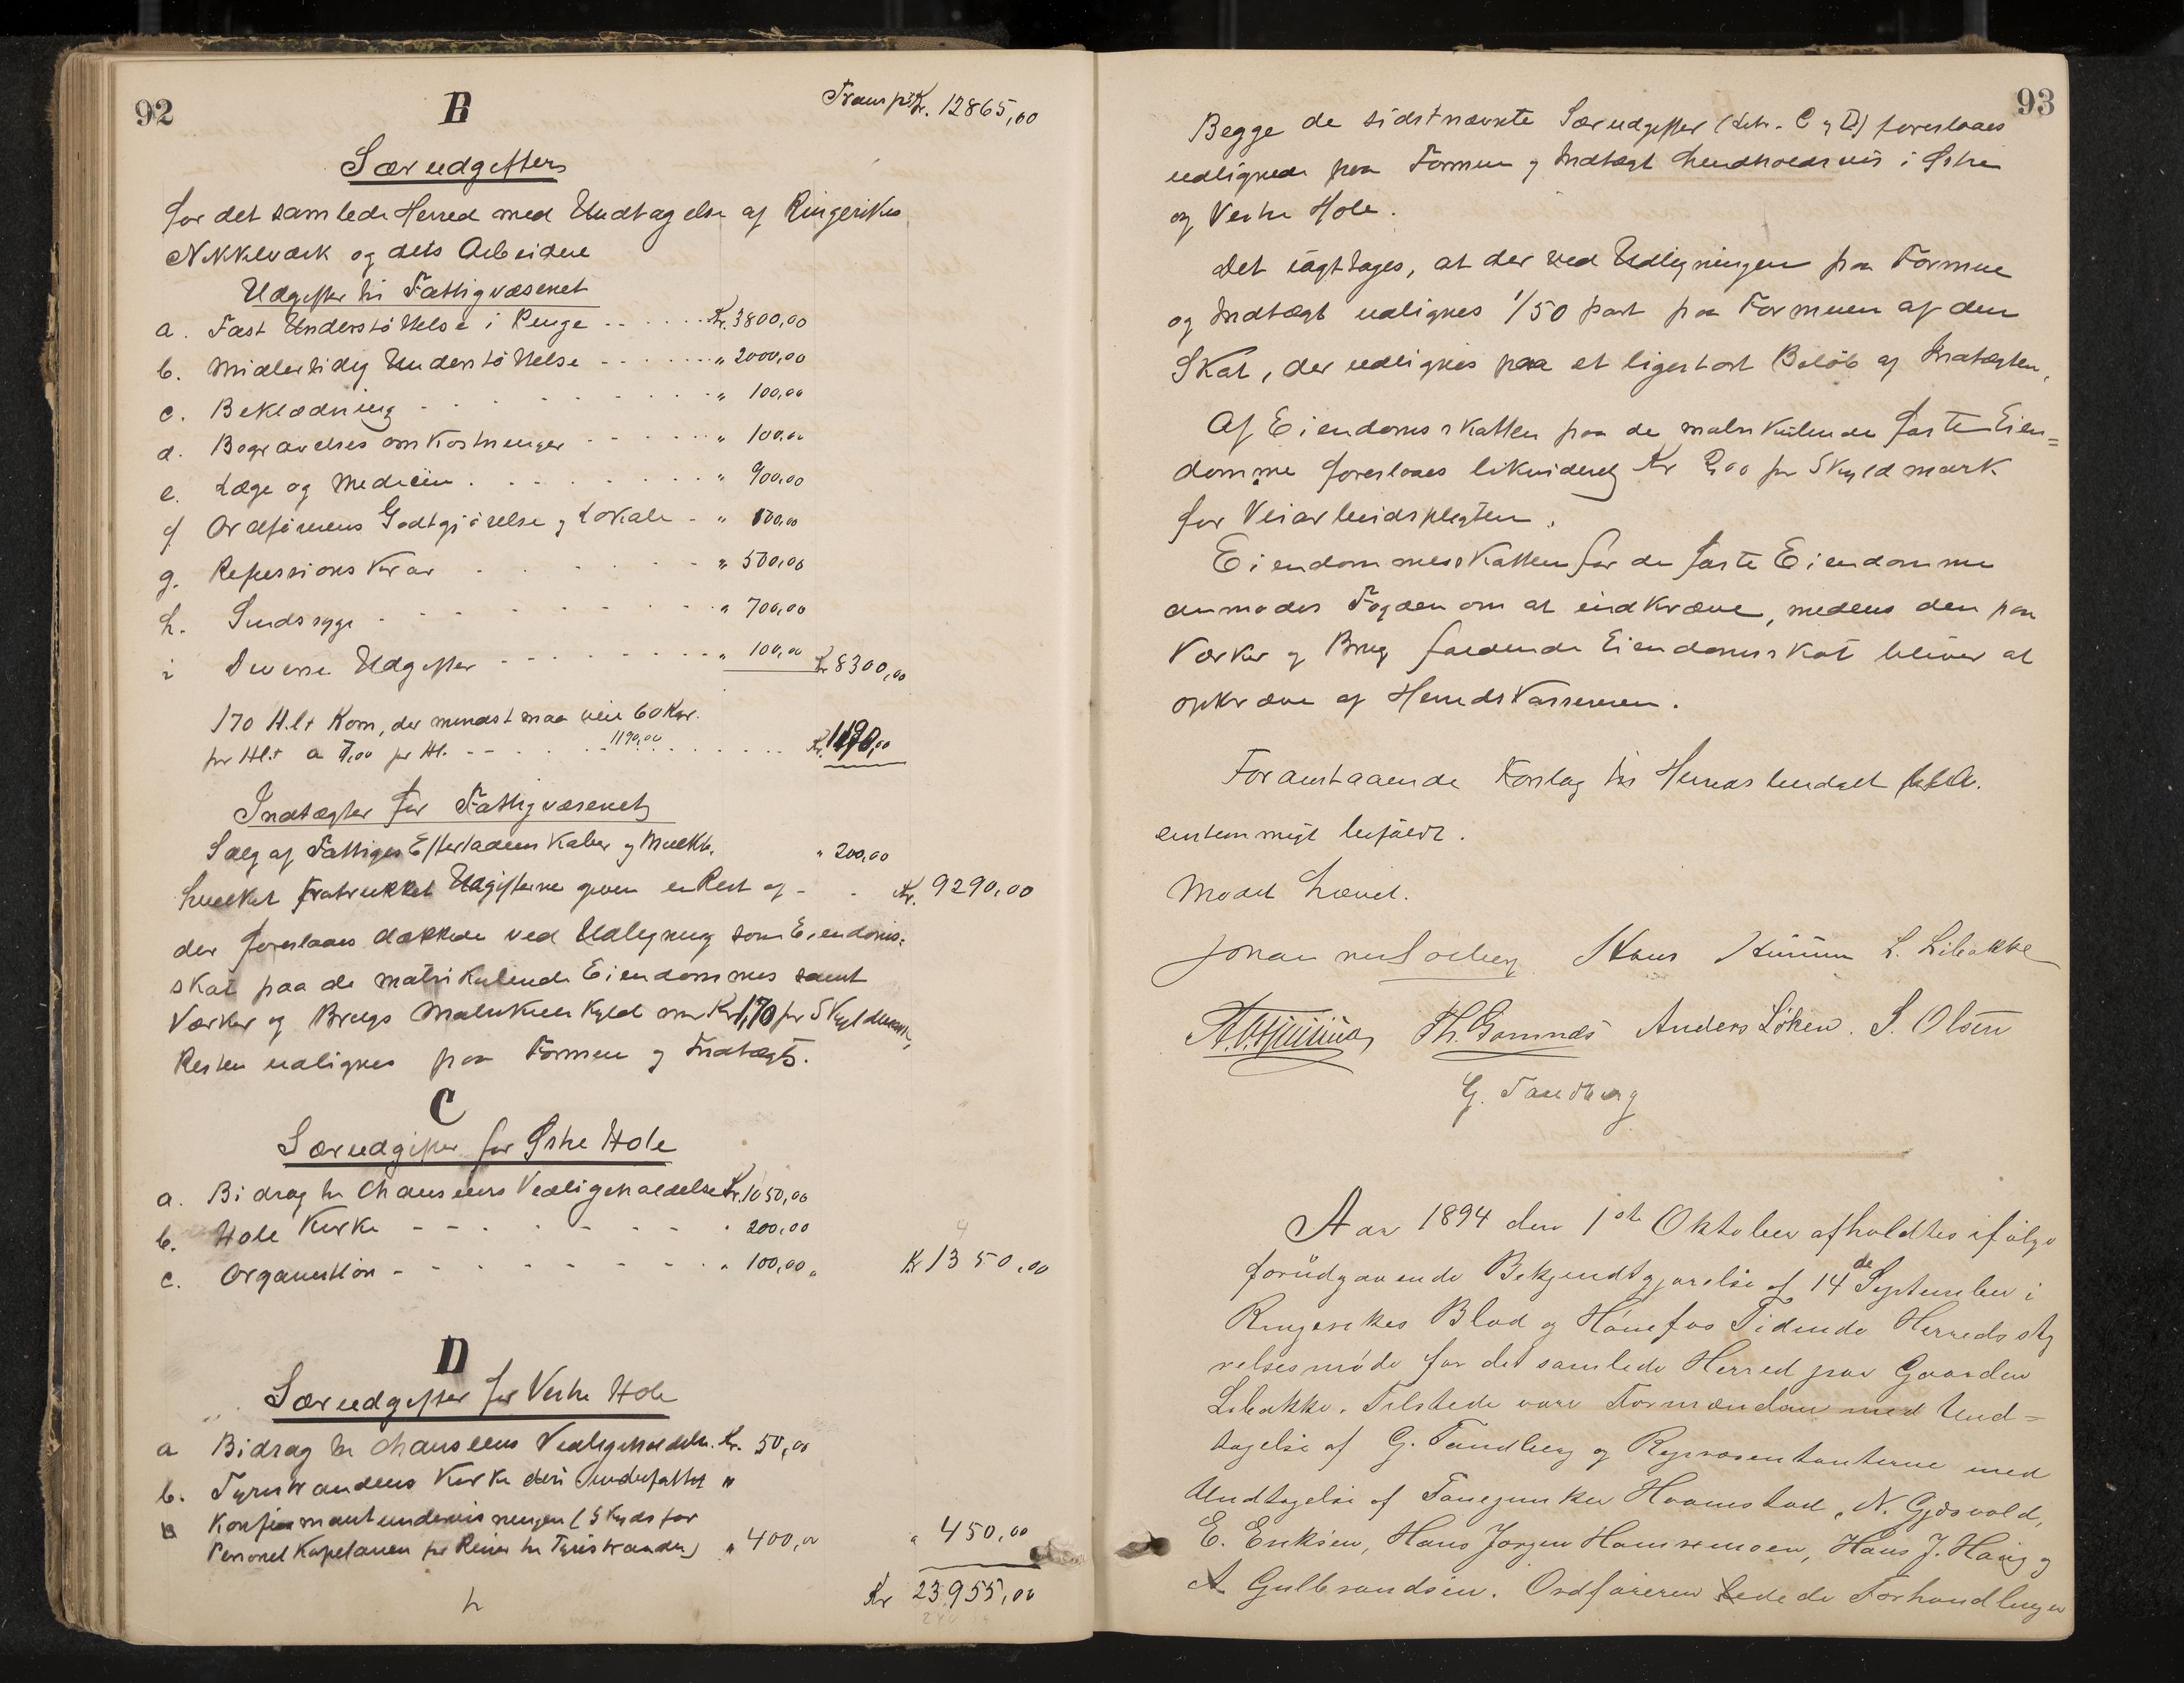 92
B
Transpt Kr. 12865,00
Særudgifter
for det samlede Herred med Undtagelse af Ringerikes
Nikkelværk og dets Arbeidere
Udgifter til Fattigvæsenet
a. Fast Understøttelse i Penge - - . . . . Kr. 3800,00
b. Midlertidig Understøttelse - - - . . . " 2000,00
c. Beklædning - . . . . . . . " 100,00
d. Begravelsesomkostninger - - - . . . " 100,00
e. Læge og Medicin . . . . . . . . " 900,00
f Ordførerens Godtgjørelse og Lokale - " 100,00
g. Repressionskrav . . . . . . - " 500,00
h. Sindssyge - . . . . . . . " 700,00
i Diverse Udgifter - - - - . . . . " 100,00 Kr 8300,00
170 Hl.t Korn, der mindst maa veie 60 Kgr.
pr Hl.t a 7,00 pr Hl. - - . . 1190,00 . . . . . . Kr. 1190,00
Indtægter for Fattigvæsenet
Salg af Fattiges Efterladenskaber og Mulkt. " 200,00
hvilket fratrukket Udgifterne giver en Rest af - - Kr. 9290,00
der foreslaaes dækkede ved Udligning som Eiendoms-
skat paa de matrikulerede Eiendommes samt
Værker og Brugs Matrikulskyld med Kr 1,70 pr Skyldmark,
Resten udlignes paa Formue og Indtægt.
C
Særudgifter for Østre Hole
a. Bidrag til Chausseens Vedligeholdelse Kr. 1050,00
b. Hole Kirke - - - . . - - - . 200,00
c. Organistløn - - - - - - - - . " 100,00 " Kr 1350,00
4
D
Særudgifter for Vestre Hole
a Bidrag til Chausseens Vedligeholdelse. Kr. 50,00
b. Tyristrandens Kirke deri indbefattet "
Konfirmantundervisningen (Skyds for
Personel Kapellanen fra Reine til Tyristranden) " 400,00 " 450,00
Kr 23,955,00
93
Begge de sidstnævnte Særudgifter (Litr. C og D) foreslaaes
udlignede paa Formue og Indtægt henholdsvis i Østre
og Vestre Hole.
Det iagttages, at der ved Udligningen paa Formue
og Indtægt udlignes 1/50 part paa Formuen af den
Skat, der udlignes paa et ligestort Beløb af Indtægten.
Af Eiendomsskatten paa de matrikulerede faste Eien=
domme foreslaaes likvideret Kr 2,00 pr Skyldmark
for Veiarbeidspligten.
Eiendommesskatten for de faste Eiendomme
anmodes Fogden om at indkræve, medens den paa
Værker og Brug faldende Eiendomsskat bliver at
opkræve af Herredskassereren.
Foranstaaende Forslag til Herredsbudget blev
enstemmigt bifaldt.
Mødet hævet.
Johannes Solberg Hans L. Libakke
Th. Gomnæs Anders Løken. S. Olsen
G. Tandberg
Aar 1894 den 1ste Oktober afholdtes ifølge
forudgaaende Bekjendtgjørelse af 14de September i
Ringerikes Blad og Hønefos Tidende Herredssty
relsesmøde for det samlede Herred paa Gaarden
Libakke. Tilstede vare Formændene med Und=
tagelse af G. Tandberg og Repræsentanterne med
Undtagelse af Tanegunker Hvamstad, N. Gjesvold,
E. Eriksen, Hans Jørgen Hamremoen, Hans J. Haug og
A Gulbrandsen. Ordføreren ledede Forhandlingen